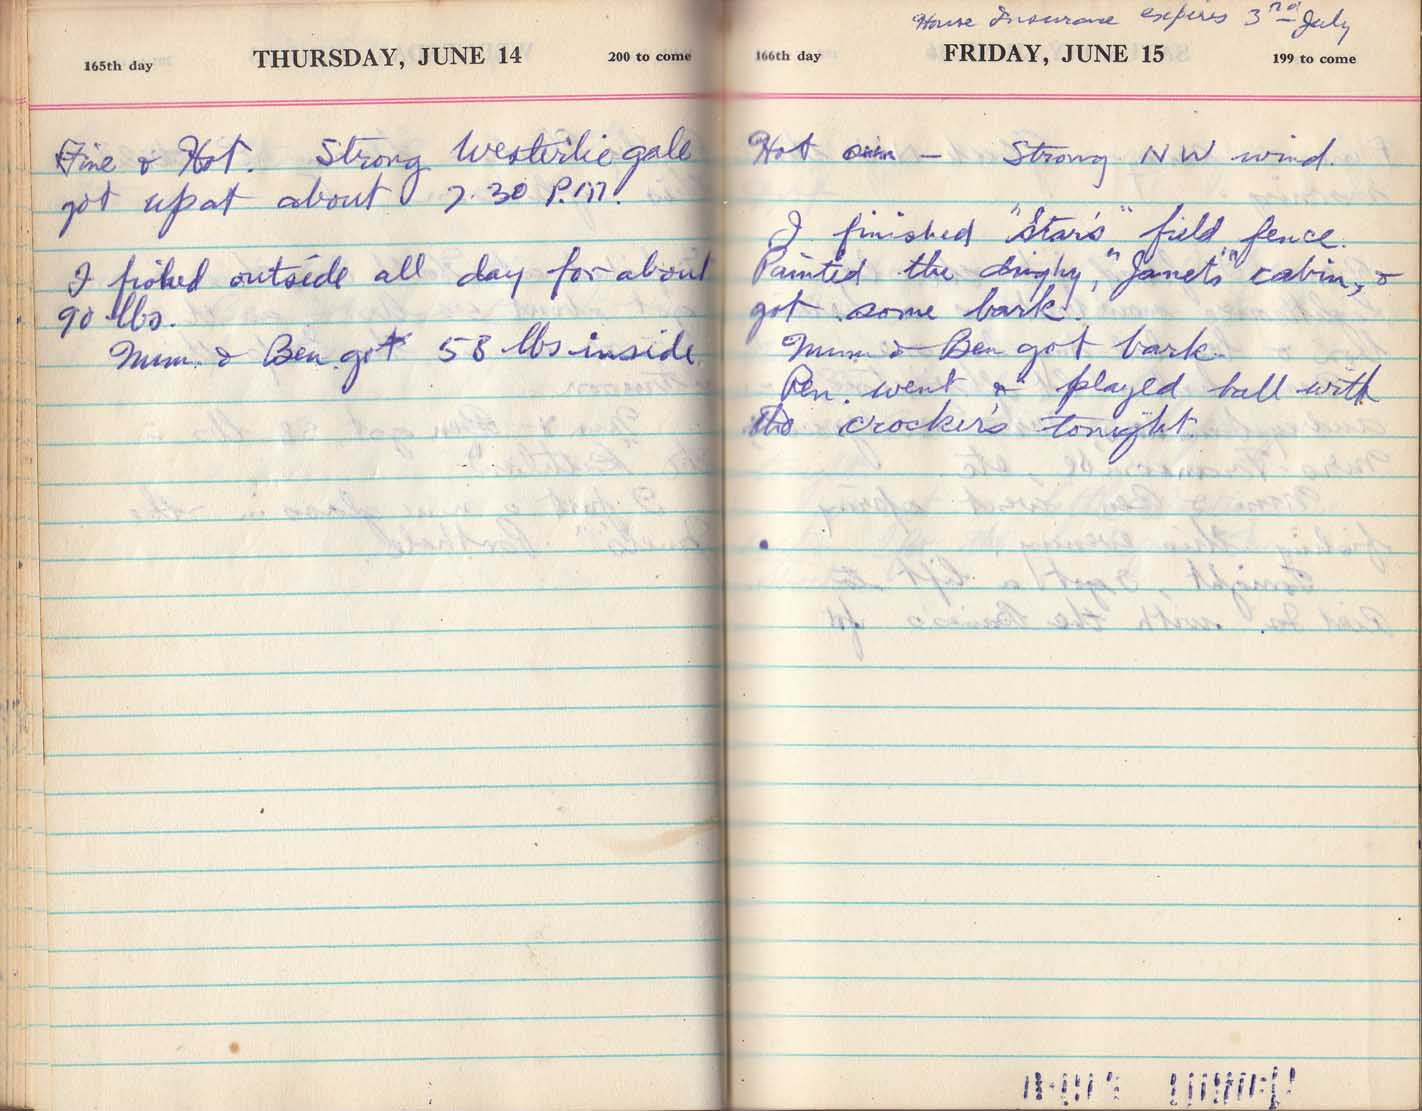 165th day THURSDAY, JUNE 14 200 to come
Fine & Hot. Strong Westerlie gale
got up at about 7.30 P.M.
I fished outside all day for about
90 lbs.
Mum. & Ben. got 58 lbs inside.
House Insurance expires 3rd July
166th day FRIDAY, JUNE 15 199 to come
Hot – Strong NW wind.
I finished "Star's" field fence.
Painted the dinghy, "Janet's" cabin, &
got some bark.
Mum. & Ben got bark.
Ben. went & played ball with
the crocker's tonight.